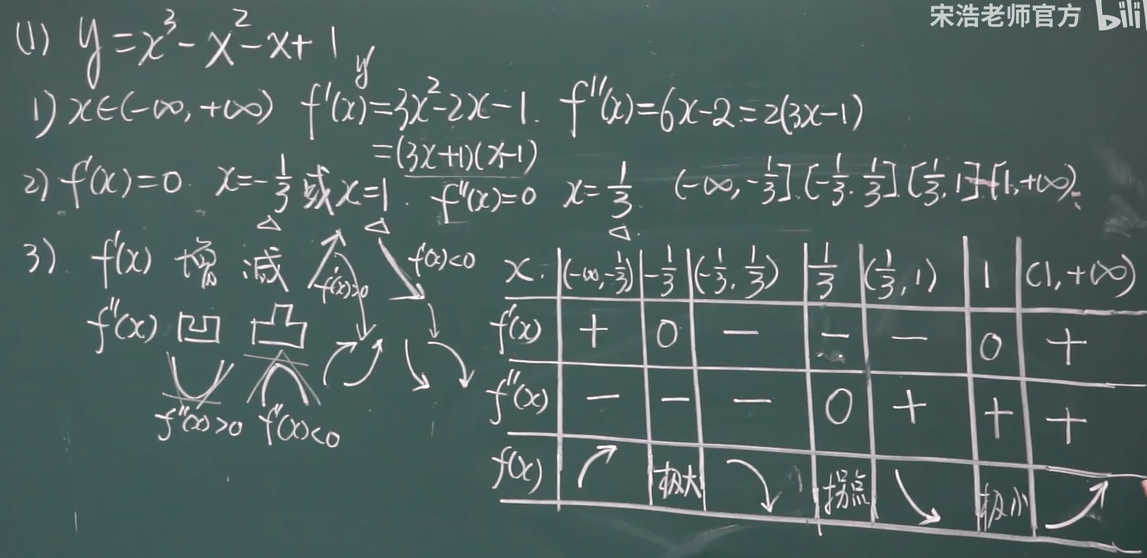 宋浩老师官方 bili
(1) y=x³-x²-x+1
y'
1) x∈(-∞,+∞) f'(x)=3x²-2x-1. f''(x)=6x-2=2(3x-1)
=(3x+1)(x-1)
2) f'(x)=0. x=-1/3 或 x=1. f''(x)=0 x=1/3 (-∞,-1/3].[-1/3.1/3][1/3,1][1,+∞).
3) f'(x) 增 减 f'(x)>0 f'(x)<0
f''(x) 凹 凸
f''(x)>0 f''(x)<0
x. (-∞,-1/3) -1/3 (-1/3,1/3) 1/3 (1/3,1) 1 (1,+∞)
f'(x) + 0 - - - 0 +
f''(x) - - - 0 + + +
f(x) 极大 拐点 极小